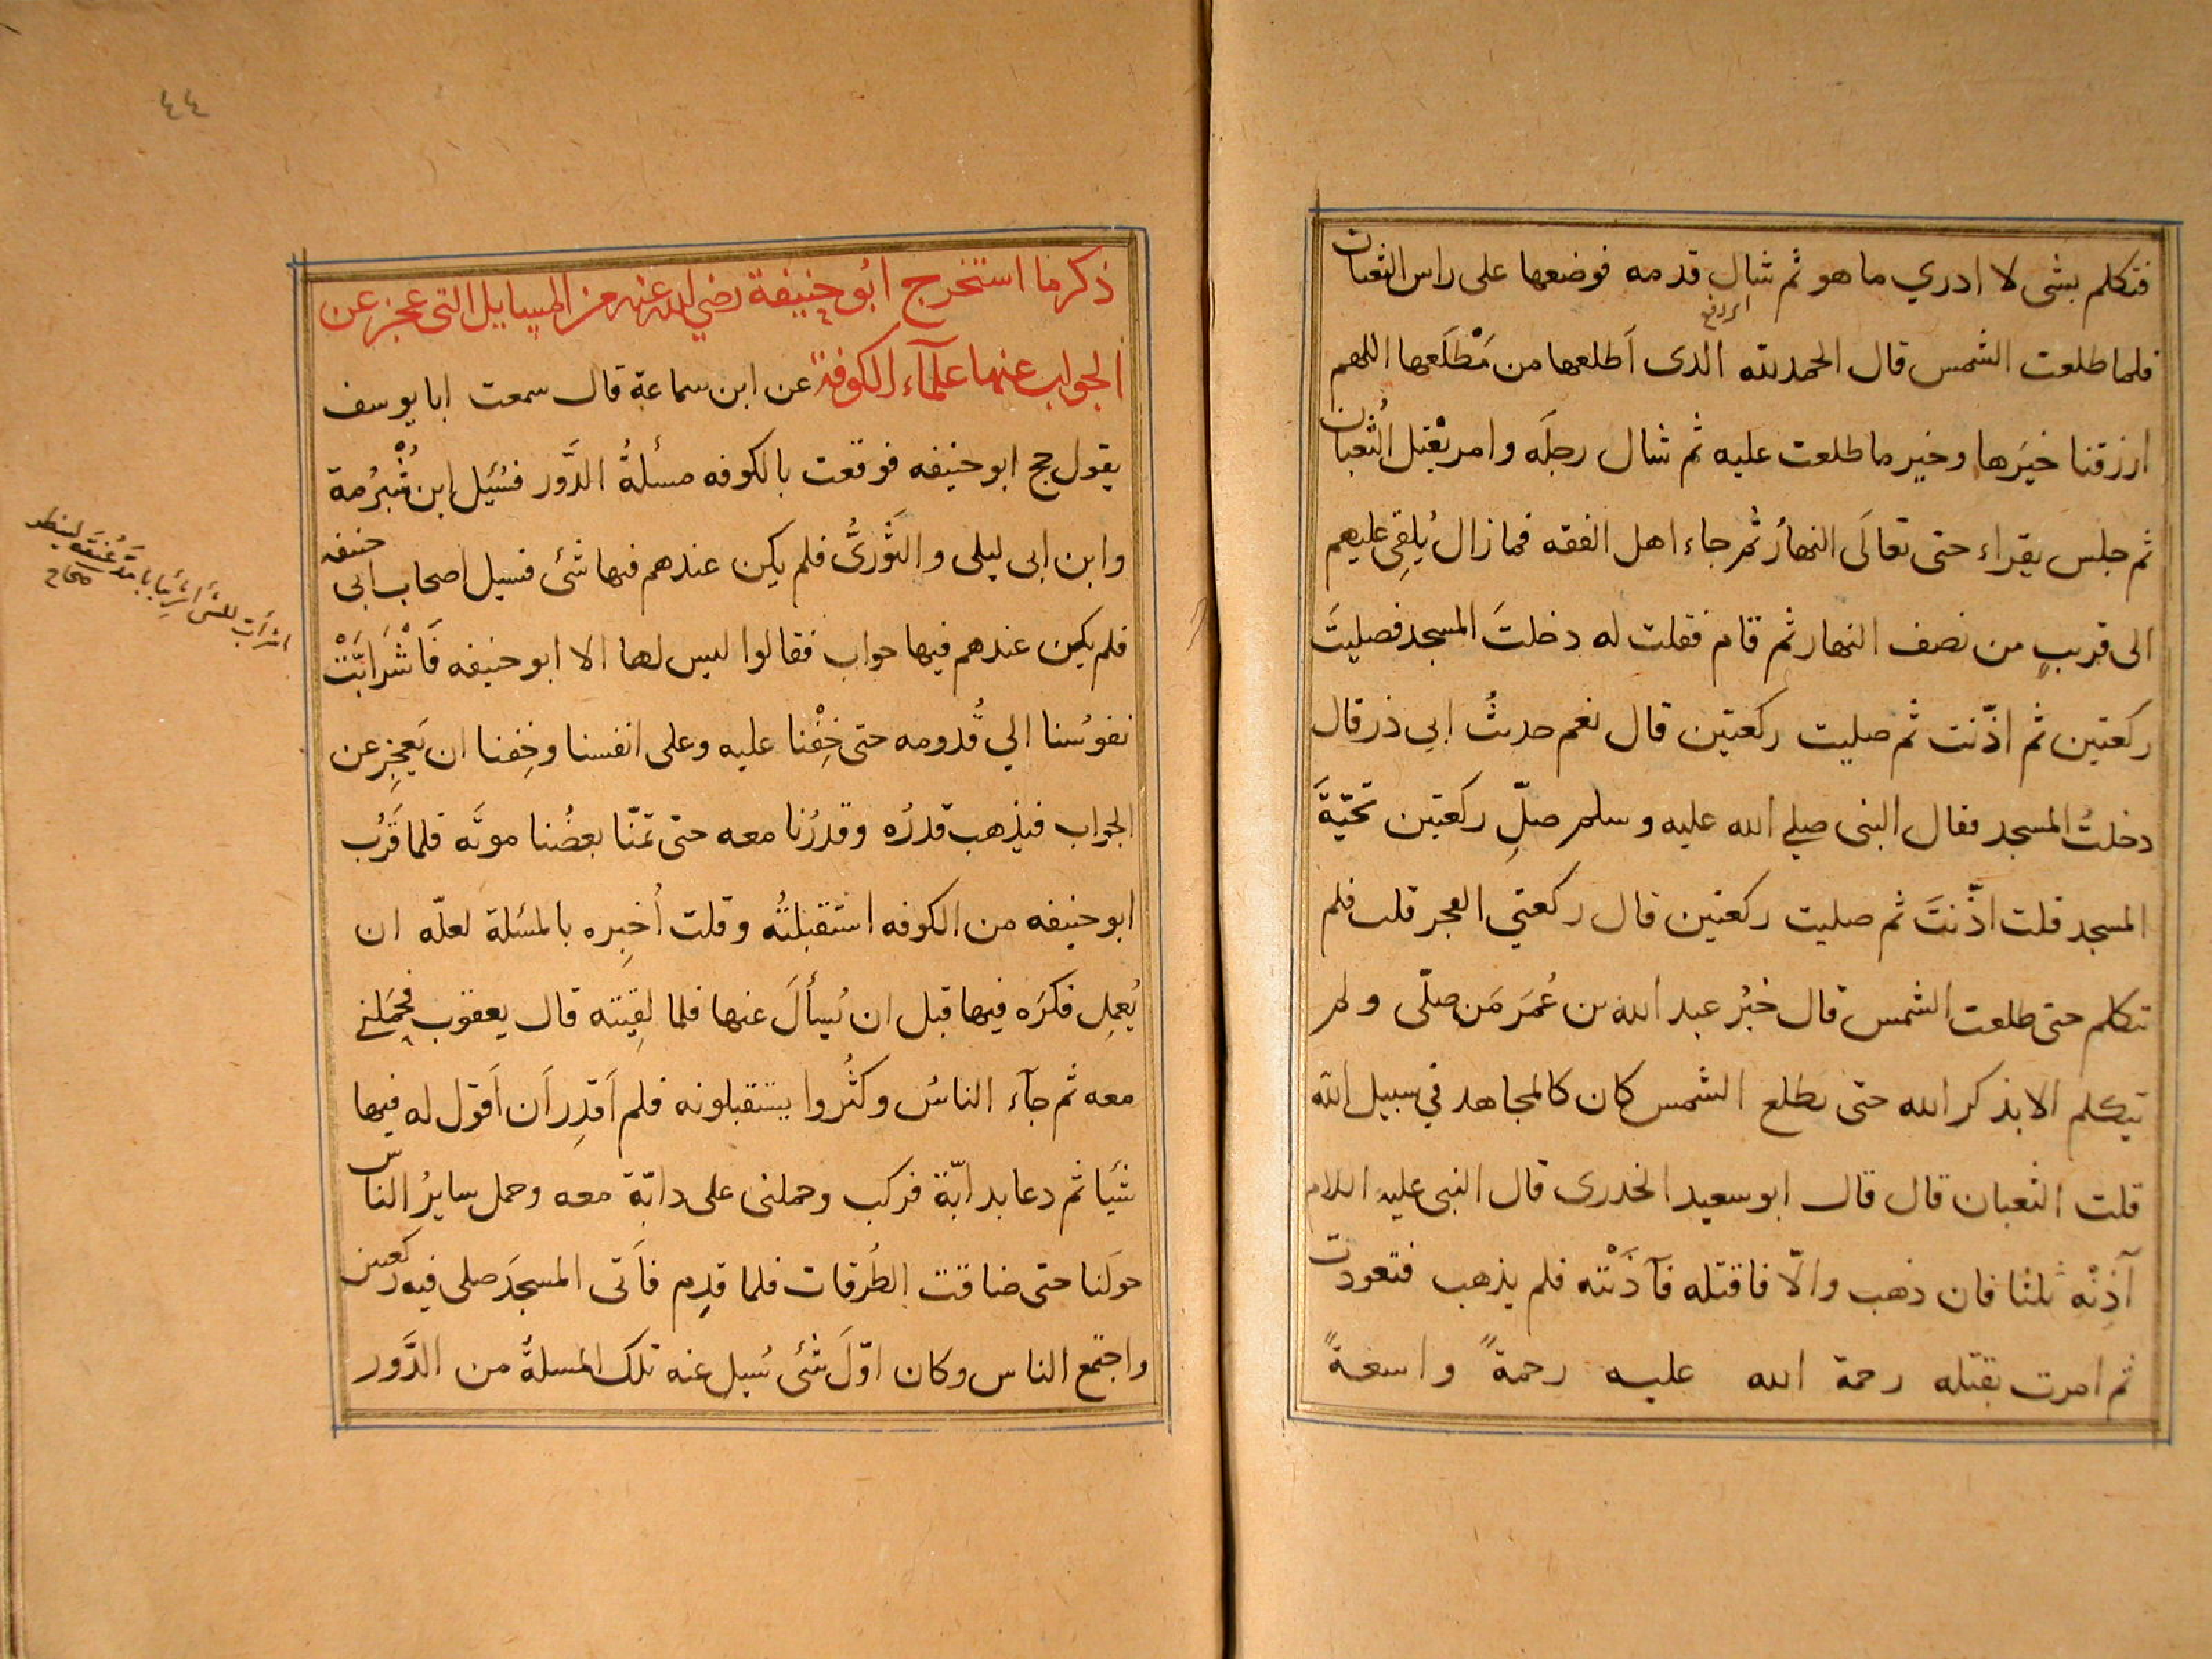 فتكلم بشى لا ادري ما هو ثم شال قدمه فوضعها على راس الثعبان
اى رفع
فلما طلعت الشمس قال الحمد لله الذى اَطلعها من مَطْلَعها اللهم
ارزقنا خيَرها وخير ما طلعت عليه ثم شال رجلَه وامر بقتل الثُعبان
ثم جلس يقراء حتى تعالَى النهارُ ثم جاء اهل الفقه فما زال يُلقِى عليهم
الى قريبٍ من نصف النهار ثم قام فقلت له دخلتَ المسجد فصليتَ
ركعتين ثم اذّنت ثم صليت ركعتين قال نعم حديثُ ابي ذر قال
دخلتُ المسجد فقال النبى صلى الله عليه وسلم صلِّ ركعتين تحيّةَ
المسجد قلت اذّنتَ ثم صليت ركعتين قال ركعتي الفجر قلت فلم
تتكلم حتى طلعت الشمس قال خبرُ عبد الله بن عُمَرَ مَن صلّى ولم
يتكلم الا بذكر الله حتى تطلع الشمس كان كالمجاهد في سبيل الله
قلت الثعبان قال قال ابو سعيد الخدرى قال النبى عليه السلام
آذِنْه ثلثا فان ذهب والّا فاقتله فآذَنْته فلم يذهب فتعوذت
ثم امرت بقتله رحمة الله عليه رحمةً واسعةً
٤٤
ذكر ما استخرج ابُو حنيفة رضي الله عنه من المسايل التى عجز عن
الجواب عنها علمآء الكوفة عن ابن سماعة قال سمعت ابا يوسف
يقول حج ابو حنيفه فوقعت بالكوفه مسألةُ الدَّور فسُئِل ابن شُبْرُمة
وابن ابى ليلى والثَّورىُّ فلم يكن عندهم فيها شئ فسيل اصحاب ابى حنيفه
فلم يكن عندهم فيها جواب فقالوا ليس لها الا ابو حنيفه فَاشْرَابَّتْ
نفوسُنا الي قُدومه حتى خِفْنا عليه وعلى انفسنا وخِفنا ان يَعجِز عن
الجواب فيذهب قدرُه وقدرُنا معه حتى تمنّا بعضُنا موتَه فلما قَرُب
ابو حنيفه من الكوفه استقبلتُه وقلت اُخبِره بالمسُلة لعلّه ان
يُعمِل فكرَه فيها قبل ان يُسألَ عنها فلما لقِيته قال يعقوب فحمَلنى
معه ثم جآء الناسُ وكثُروا يستقبلونه فلم اَقدِر اَن اَقول له فيها
شيًا ثم دعا بدابّة فركب وحملنى على دابّة معه وحمل سايرُ الناس
حولَنا حتى ضاقت الطُرقات فلما قدِم فاَتى المسجدَ صلى فيه ركعتين
واجتمع الناس وكان اوّلَ شئ سُيل عنه تلك المسلةُ من الدَّور
صحاح